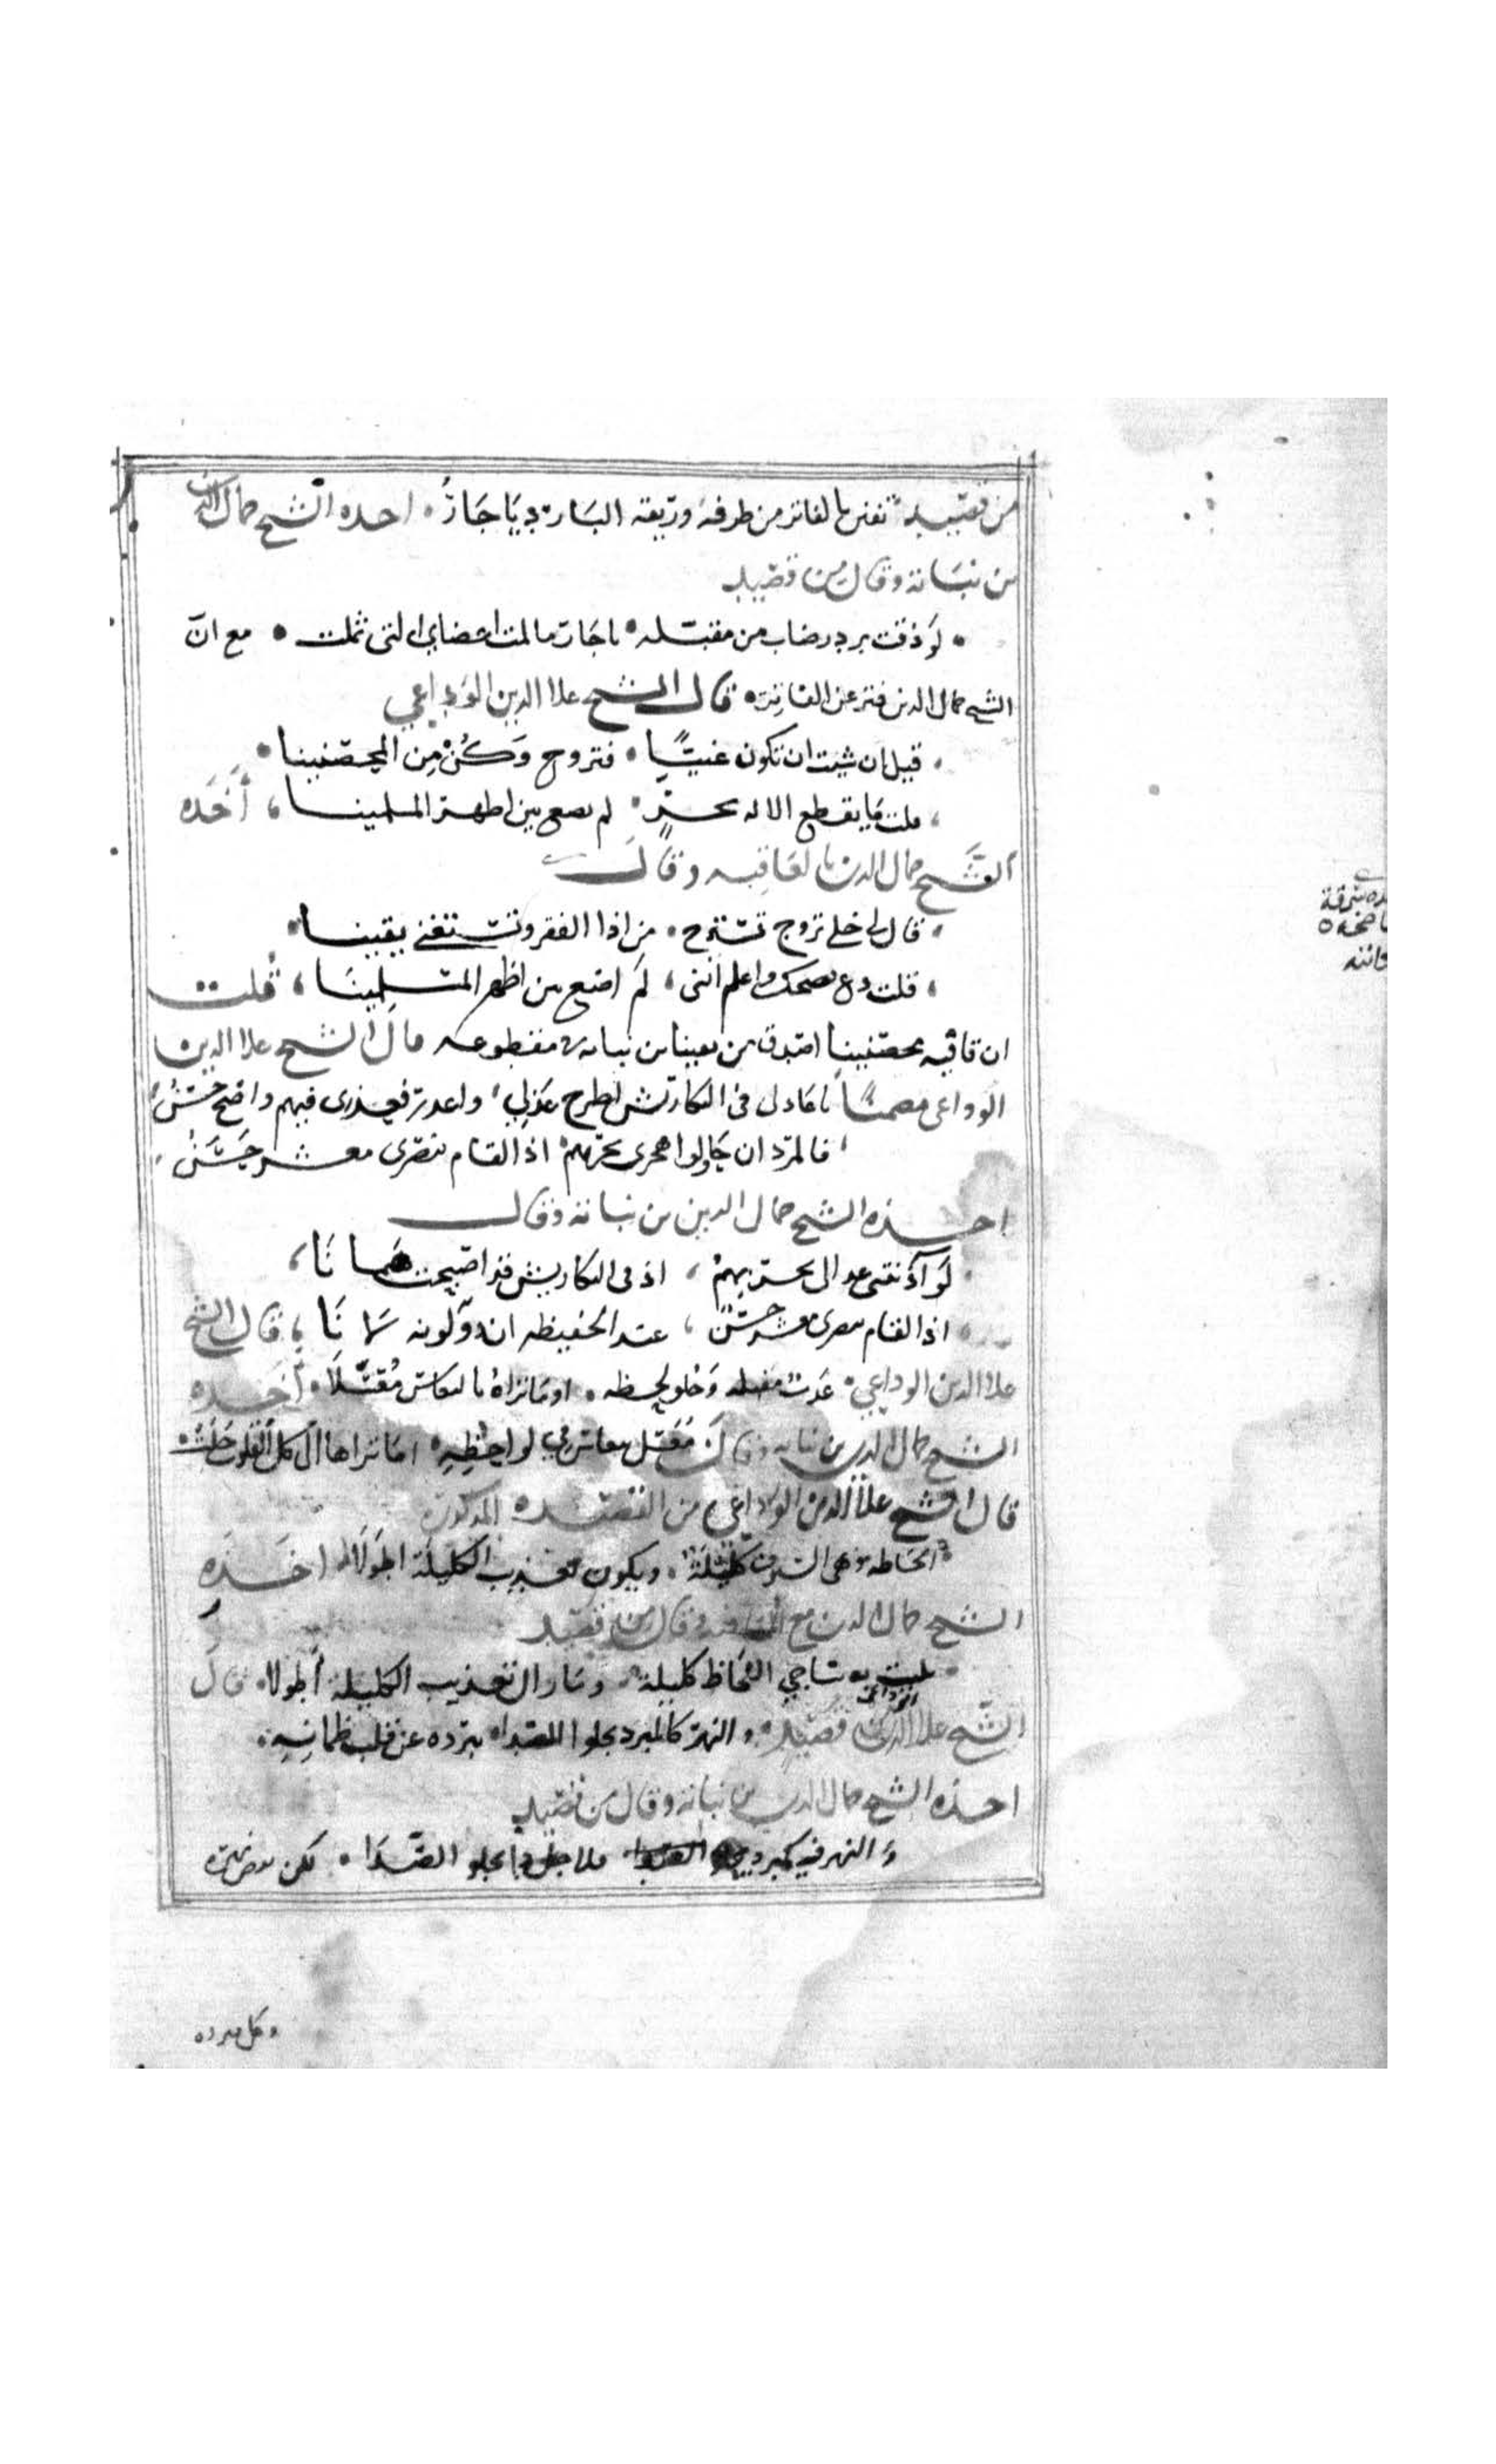 من قصيد تفنن بالفاتر من طرفه وريقه البارد يا حار احده الشيخ جمال الدين
بن نباته وقال من قصيد
لو ذقت برد رضاب من مقبله يا حار ما لمت اعضاي التي ثملت مع ان
الشيخ جمال الدين فتر عن الفاتره قال الشيخ علا الدين الوداعي
قيل ان شيت ان تكون غنيًا فتزوج وكُنْ مِن المحصنينا
قلت ما يقطع الاله بحرٍ لم يضع بين اظهر المسلمينا أخَده
الشيخ جمال الدين بالقافيه وقال
قال لي خلي تزوج تسترح من اذا الفقر وتستغني يقينا
قلت دع نصحك واعلم انني لم اضع بين اظهر المسلمينا قلت
ان قافية محصنينا اصدق من يقينا بن نباته في مقطوعه قال الشيخ علا الدين
الوداعي مضمنًا يا عاذلي في التكاريش اطرح عذلي واعدر فعذري فيهم واضح حسَنُ
فالمرد ان حاولوا هجري بحربهم اذا لقام بنصري معشر خَشِنُ
احذه الشيخ جمال الدين بن نباته وقال
لو آذنتني عدالي بحربهم اذ في التكاريش قد اصبحت
اذا لقام بنصري معشر خشن عند الحفيظه ان ذو لوثه لانَا قال الشيخ
علا الدين الوداعي وحلو لحظه اوما تراهُ بالنعاس مُعَسَّلاَ أخَده
الشيخ جمال الدين بن نباته وقال معسل بنعاس في لواحظِهِ اما تراها الى كل القلوب حَلَتْ
قال الشيخ علا الدين الوداعي من القصيده المذكوره
الحاظه وهي السيوف كليلة ويكون تعذيب الكليلة اطولا اخَده
الشيخ جمال الدين مع وقال من قصيد
ساجي اللحاظ كليلة وما زال تعذيب الكليلة أطولا قال
الشيخ علا الدين الوداعي قصيد والنهر كالمبرد يجلوا الصدا ببرده عن قلب ظمانِهِ
احذه الشيخ جمال الدين بن نباته وقال من قصيد
والنهر فيه كمبرد فلاجل ذا يجلو الصَّدَا لكن بعض